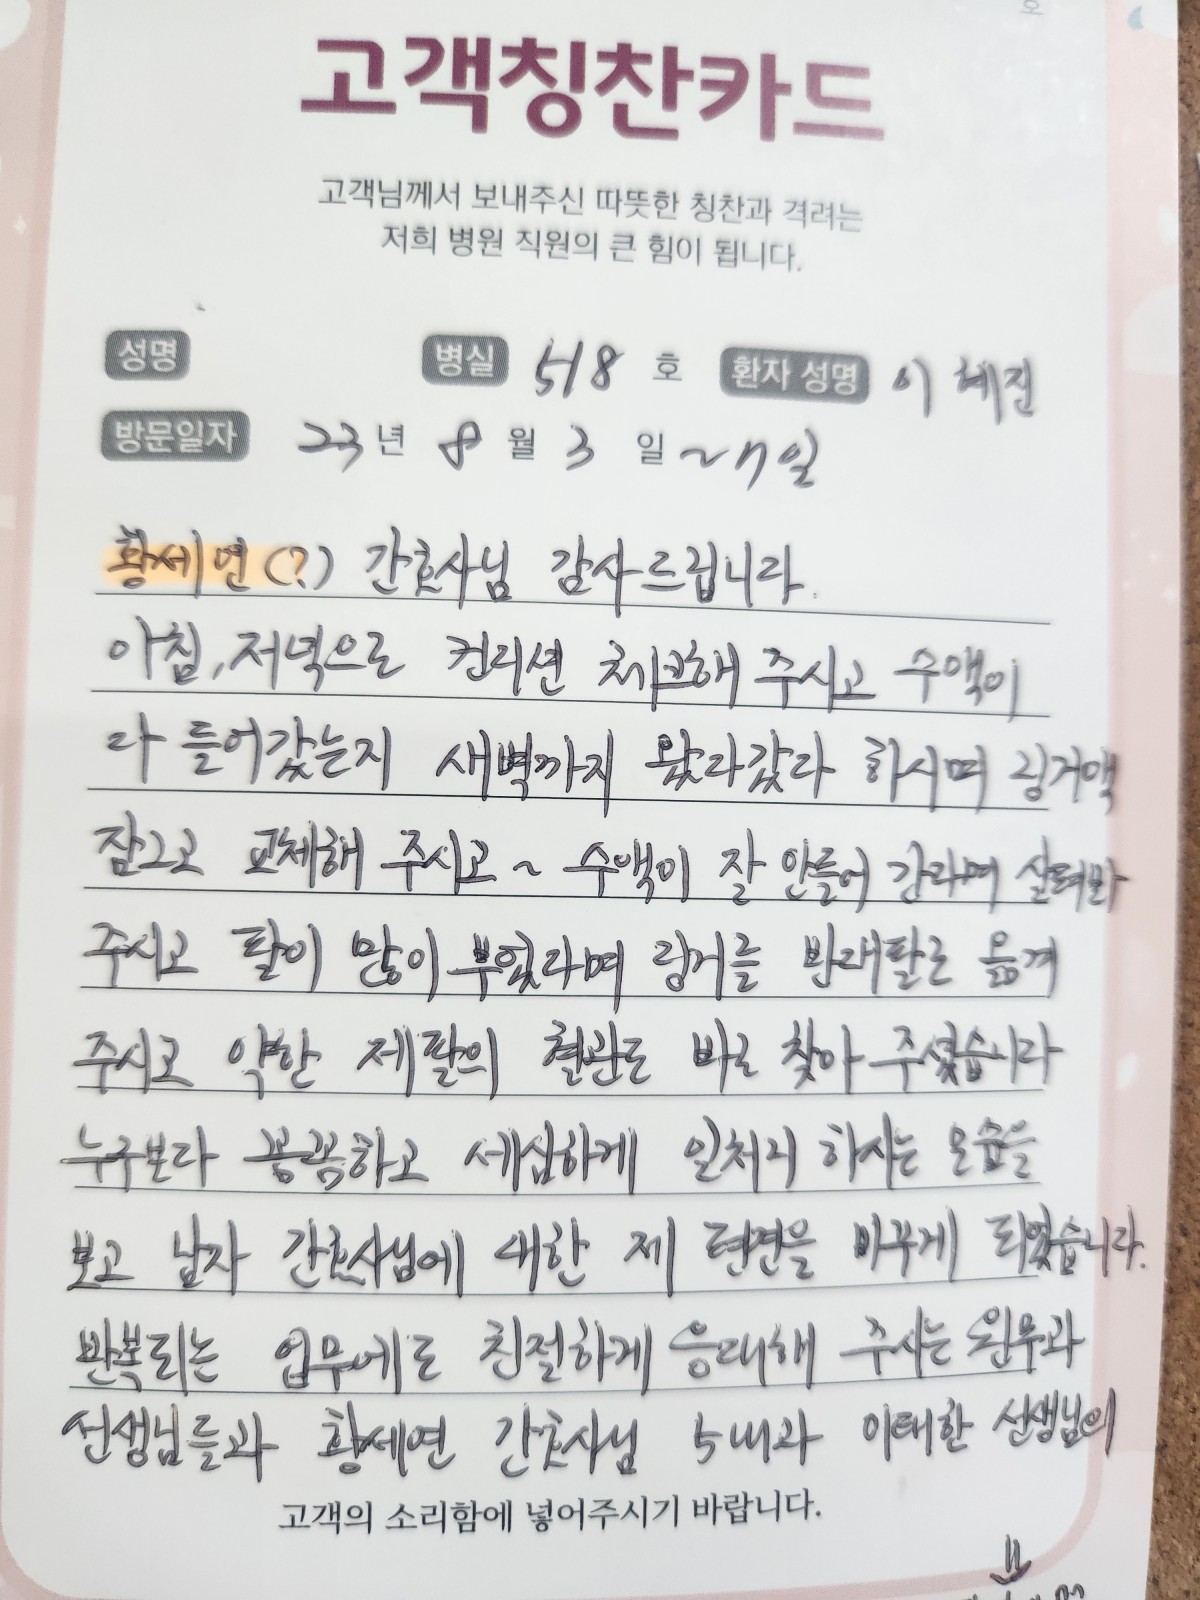 호
고객칭찬카드
고객님께서 보내주신 따뜻한 칭찬과 격려는
저희 병원 직원의 큰 힘이 됩니다.
성명 병실 518 호 환자 성명 이혜진
방문일자 23년 8월 3일 ~7일
황세연(?) 간호사님 감사드립니다.
아침,저녁으로 컨디션 체크해 주시고 수액이
다 들어갔는지 새벽까지 왔다갔다 하시며 링거액
잠그고 교체해 주시고~ 수액이 잘 안들어 간다며 살펴봐
주시고 팔이 많이 부었다며 링거를 반대팔로 옮겨
주시고 약한 제팔의 혈관도 바로 찾아 주셨습니다
누구보다 꼼꼼하고 세심하게 일처리 하시는 모습을
보고 남자 간호사님에 대한 제 편견을 바꾸게 되었습니다.
반복되는 업무에도 친절하게 응대해 주시는 원무과
선생님들과 황세연 간호사님 5내과 이태한 선생님의
고객의 소리함에 넣어주시기 바랍니다.